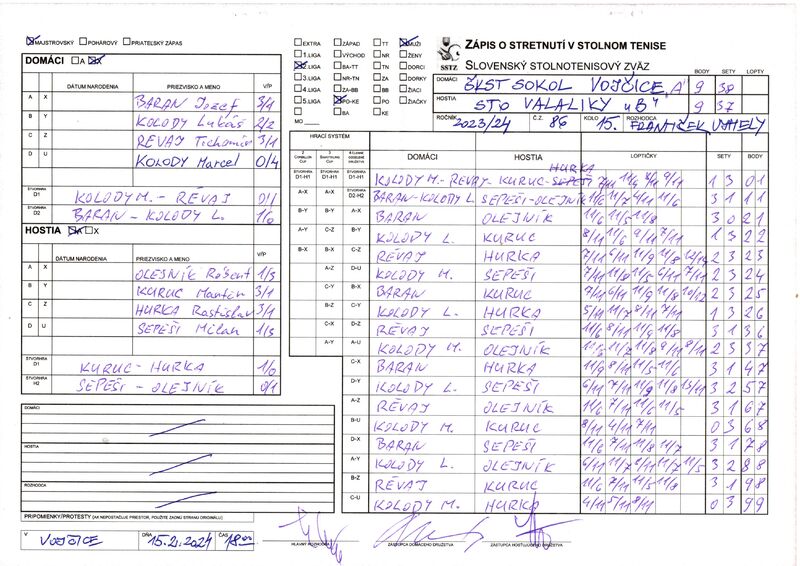 MAJSTROVSKÝ POHÁROVÝ PRIATEĽSKÝ ZÁPAS
DOMÁCI A X
DÁTUM NARODENIA PRIEZVISKO A MENO V/P
A X BARAN Jozef 3/1
B Y KOLODY Lukáš 2/2
C Z RÉVAJ Tichomír 3/1
D U KOLODY Marcel 0/4
ŠTVORHRA D1 KOLODY M. - RÉVAJ 0/1
ŠTVORHRA D2 BARAN - KOLODY L. 1/0
HOSTIA A X
DÁTUM NARODENIA PRIEZVISKO A MENO V/P
A X OLEJNÍK Róbert 1/3
B Y KURUC Martin 3/1
C Z HURKA Rastislav 3/1
D U SEPEŠI Milan 1/3
ŠTVORHRA D1 KURUC - HURKA 1/0
ŠTVORHRA H2 SEPEŠI - OLEJNÍK 0/1
DOMÁCI
HOSTIA
ROZHODCA
PRIPOMIENKY/PROTESTY (AK NEPOSTAČUJE PRIESTOR, POUŽITE ZADNÚ STRANU ORIGINÁLU)
V VOJČICE DŇA 15.2.2024 ČAS 18:00
EXTRA ZÁPAD TT MUŽI
1.LIGA VÝCHOD NR ŽENY
2.LIGA BA-TT TN DORCI
3.LIGA NR-TN ZA DORKY
4.LIGA ZA-BB BB ŽIACI
5.LIGA PO-KE PO ŽIAČKY
BA KE
MO
SSTZ
ZÁPIS O STRETNUTÍ V STOLNOM TENISE
SLOVENSKÝ STOLNOTENISOVÝ ZVÄZ
BODY SETY LOPTY
DOMÁCI ŠKST SOKOL VOJČICE "A" 9 38
HOSTIA STO VALALIKY "B" 9 37
ROČNÍK 2023/24 Č.Z. 86 KOLO 15. ROZHODCA FRANTIŠEK
HRACÍ SYSTÉM
DOMÁCI HOSTIA LOPTIČKY SETY BODY
D1-H1 D1-H1 D1-H1 KOLODY M. - RÉVAJ - KURUC - HURKA 1 3 0 1
A-X A-X D2-H2 BARAN - KOLODY L. SEPEŠI - OLEJNÍK 3 1 1 1
B-Y B-Y A-X BARAN OLEJNÍK 11/6 11/5 11/8 3 0 2 1
A-Y C-Z B-Y KOLODY L. KURUC 8/11 11/6 9/11 7/11 1 3 2 2
B-X B-X C-Z RÉVAJ HURKA 2 3 2 3
A-Z D-U KOLODY M. SEPEŠI 2 3 2 4
C-Y B-X BARAN KURUC 2 3 2 5
B-Z C-Y KOLODY L. HURKA 5/11 11/7 8/11 7/11 1 3 2 6
C-X D-Z RÉVAJ SEPEŠI 3 1 3 6
A-Y A-U KOLODY M. OLEJNÍK 2 3 3 7
C-X BARAN HURKA 11/9 8/11 11/5 11/6 3 1 4 7
D-Y KOLODY L. SEPEŠI 3 2 5 7
A-Z RÉVAJ OLEJNÍK 11/6 7/11 11/6 11/5 3 1 6 7
B-U KOLODY M. KURUC 8/11 4/11 7/11 0 3 6 8
D-X BARAN SEPEŠI 11/6 7/11 11/8 11/7 3 1 7 8
A-Y KOLODY L. OLEJNÍK 3 2 8 8
B-Z RÉVAJ KURUC 11/6 7/11 11/5 11/8 3 1 9 8
C-U KOLODY M. HURKA 4/11 5/11 8/11 0 3 9 9
HLAVNÝ ROZHODCA ZÁSTUPCA DOMÁCEHO DRUŽSTVA ZÁSTUPCA HOSŤUJÚCEHO DRUŽSTVA